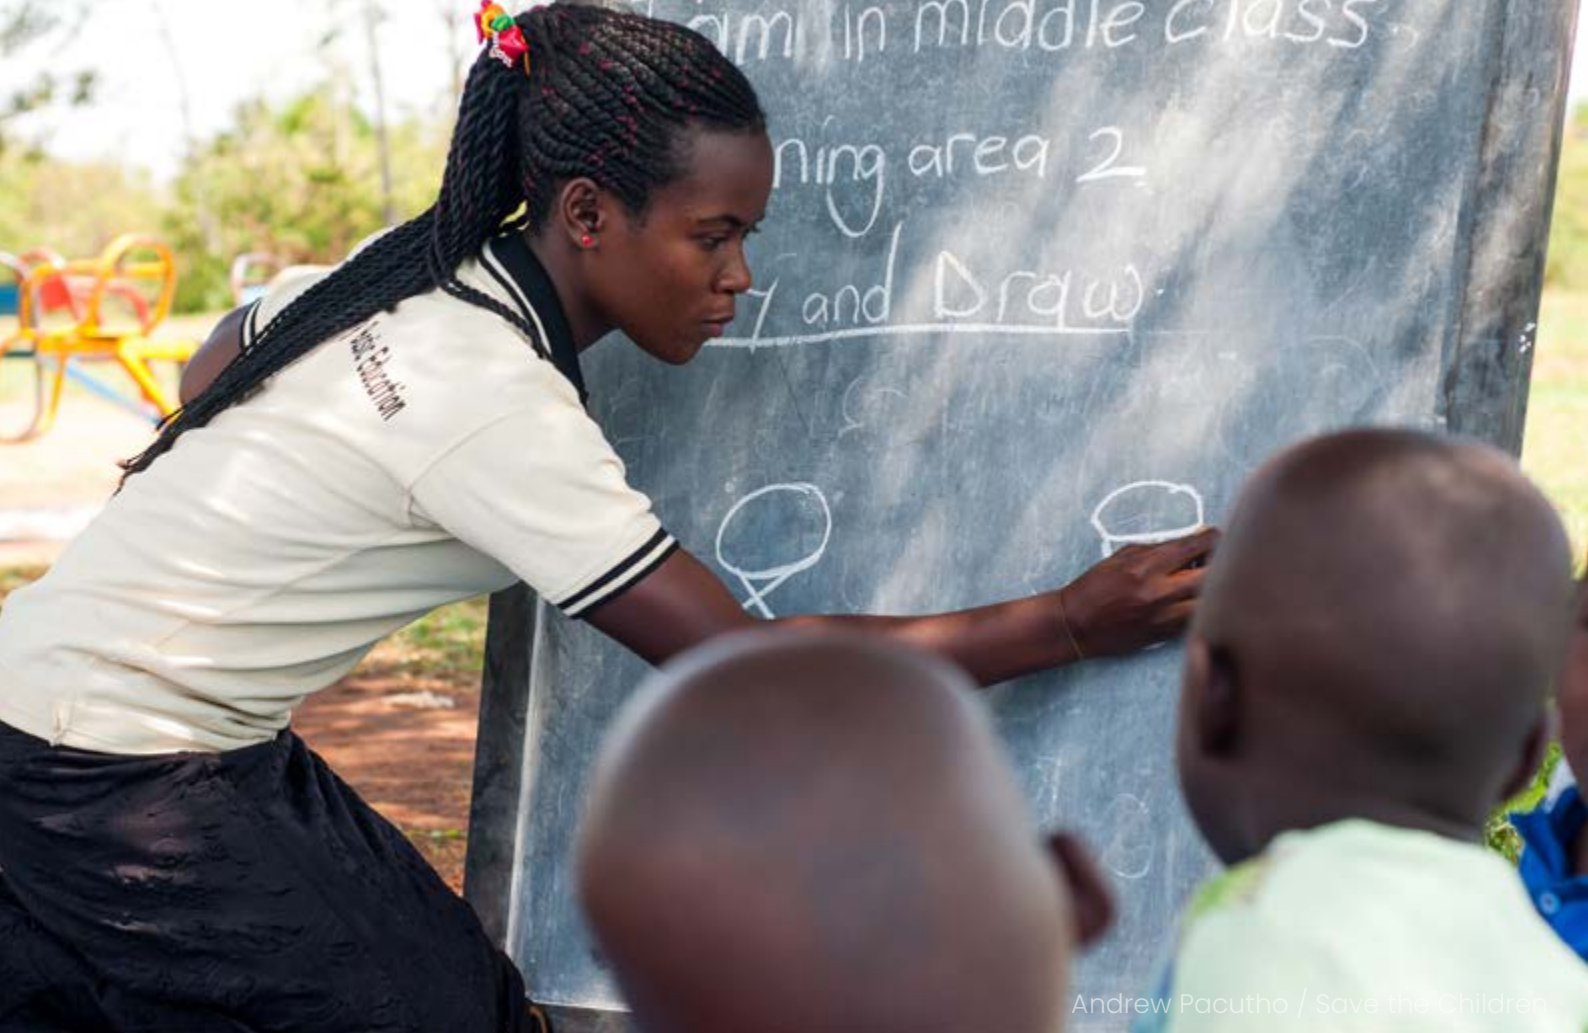 am in middle class.
ning area 2
y and Draw
Basic Education
Andrew Pacutho / Save the Children